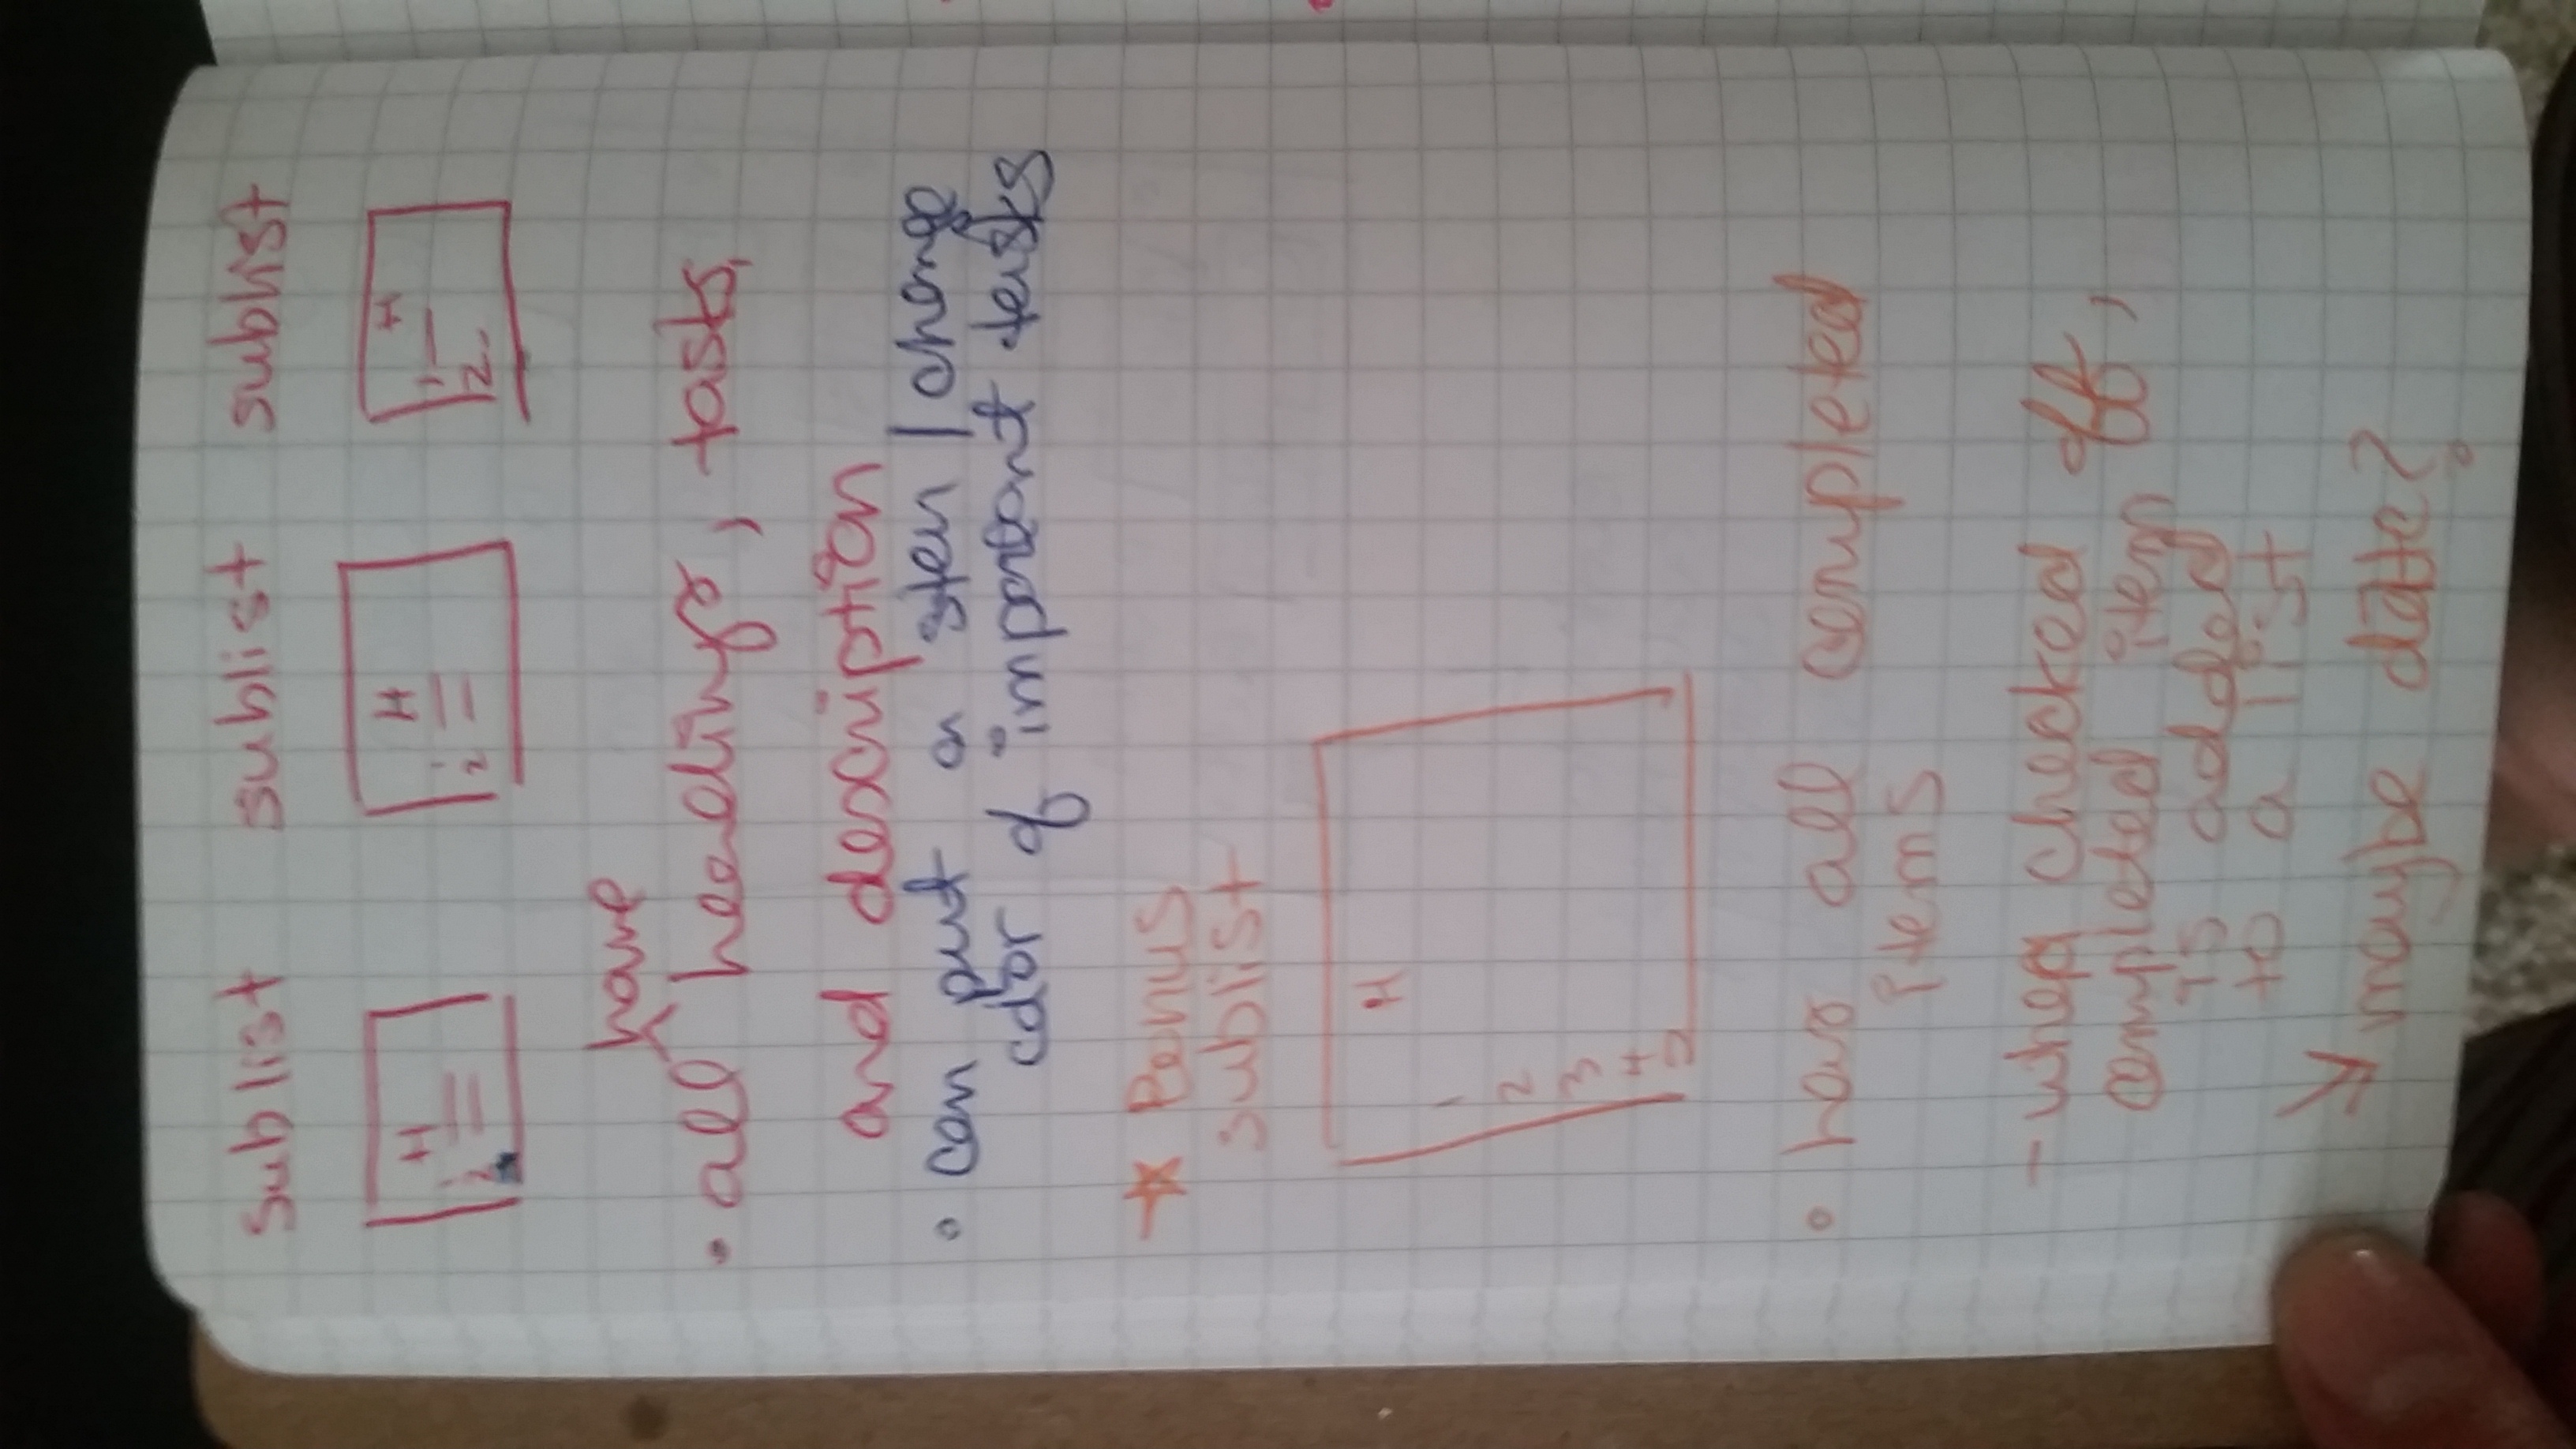 sublist sublist sublist
H H H
1 1 1
2 2 2
have
• all ^ headings, tasks,
and description
• can put a star / change
color of important tasks
☆ Bonus
sublist
H
1
2
3
4
5
• has all completed
items
- when checked off,
completed item
is added
to a list
↘ maybe date?